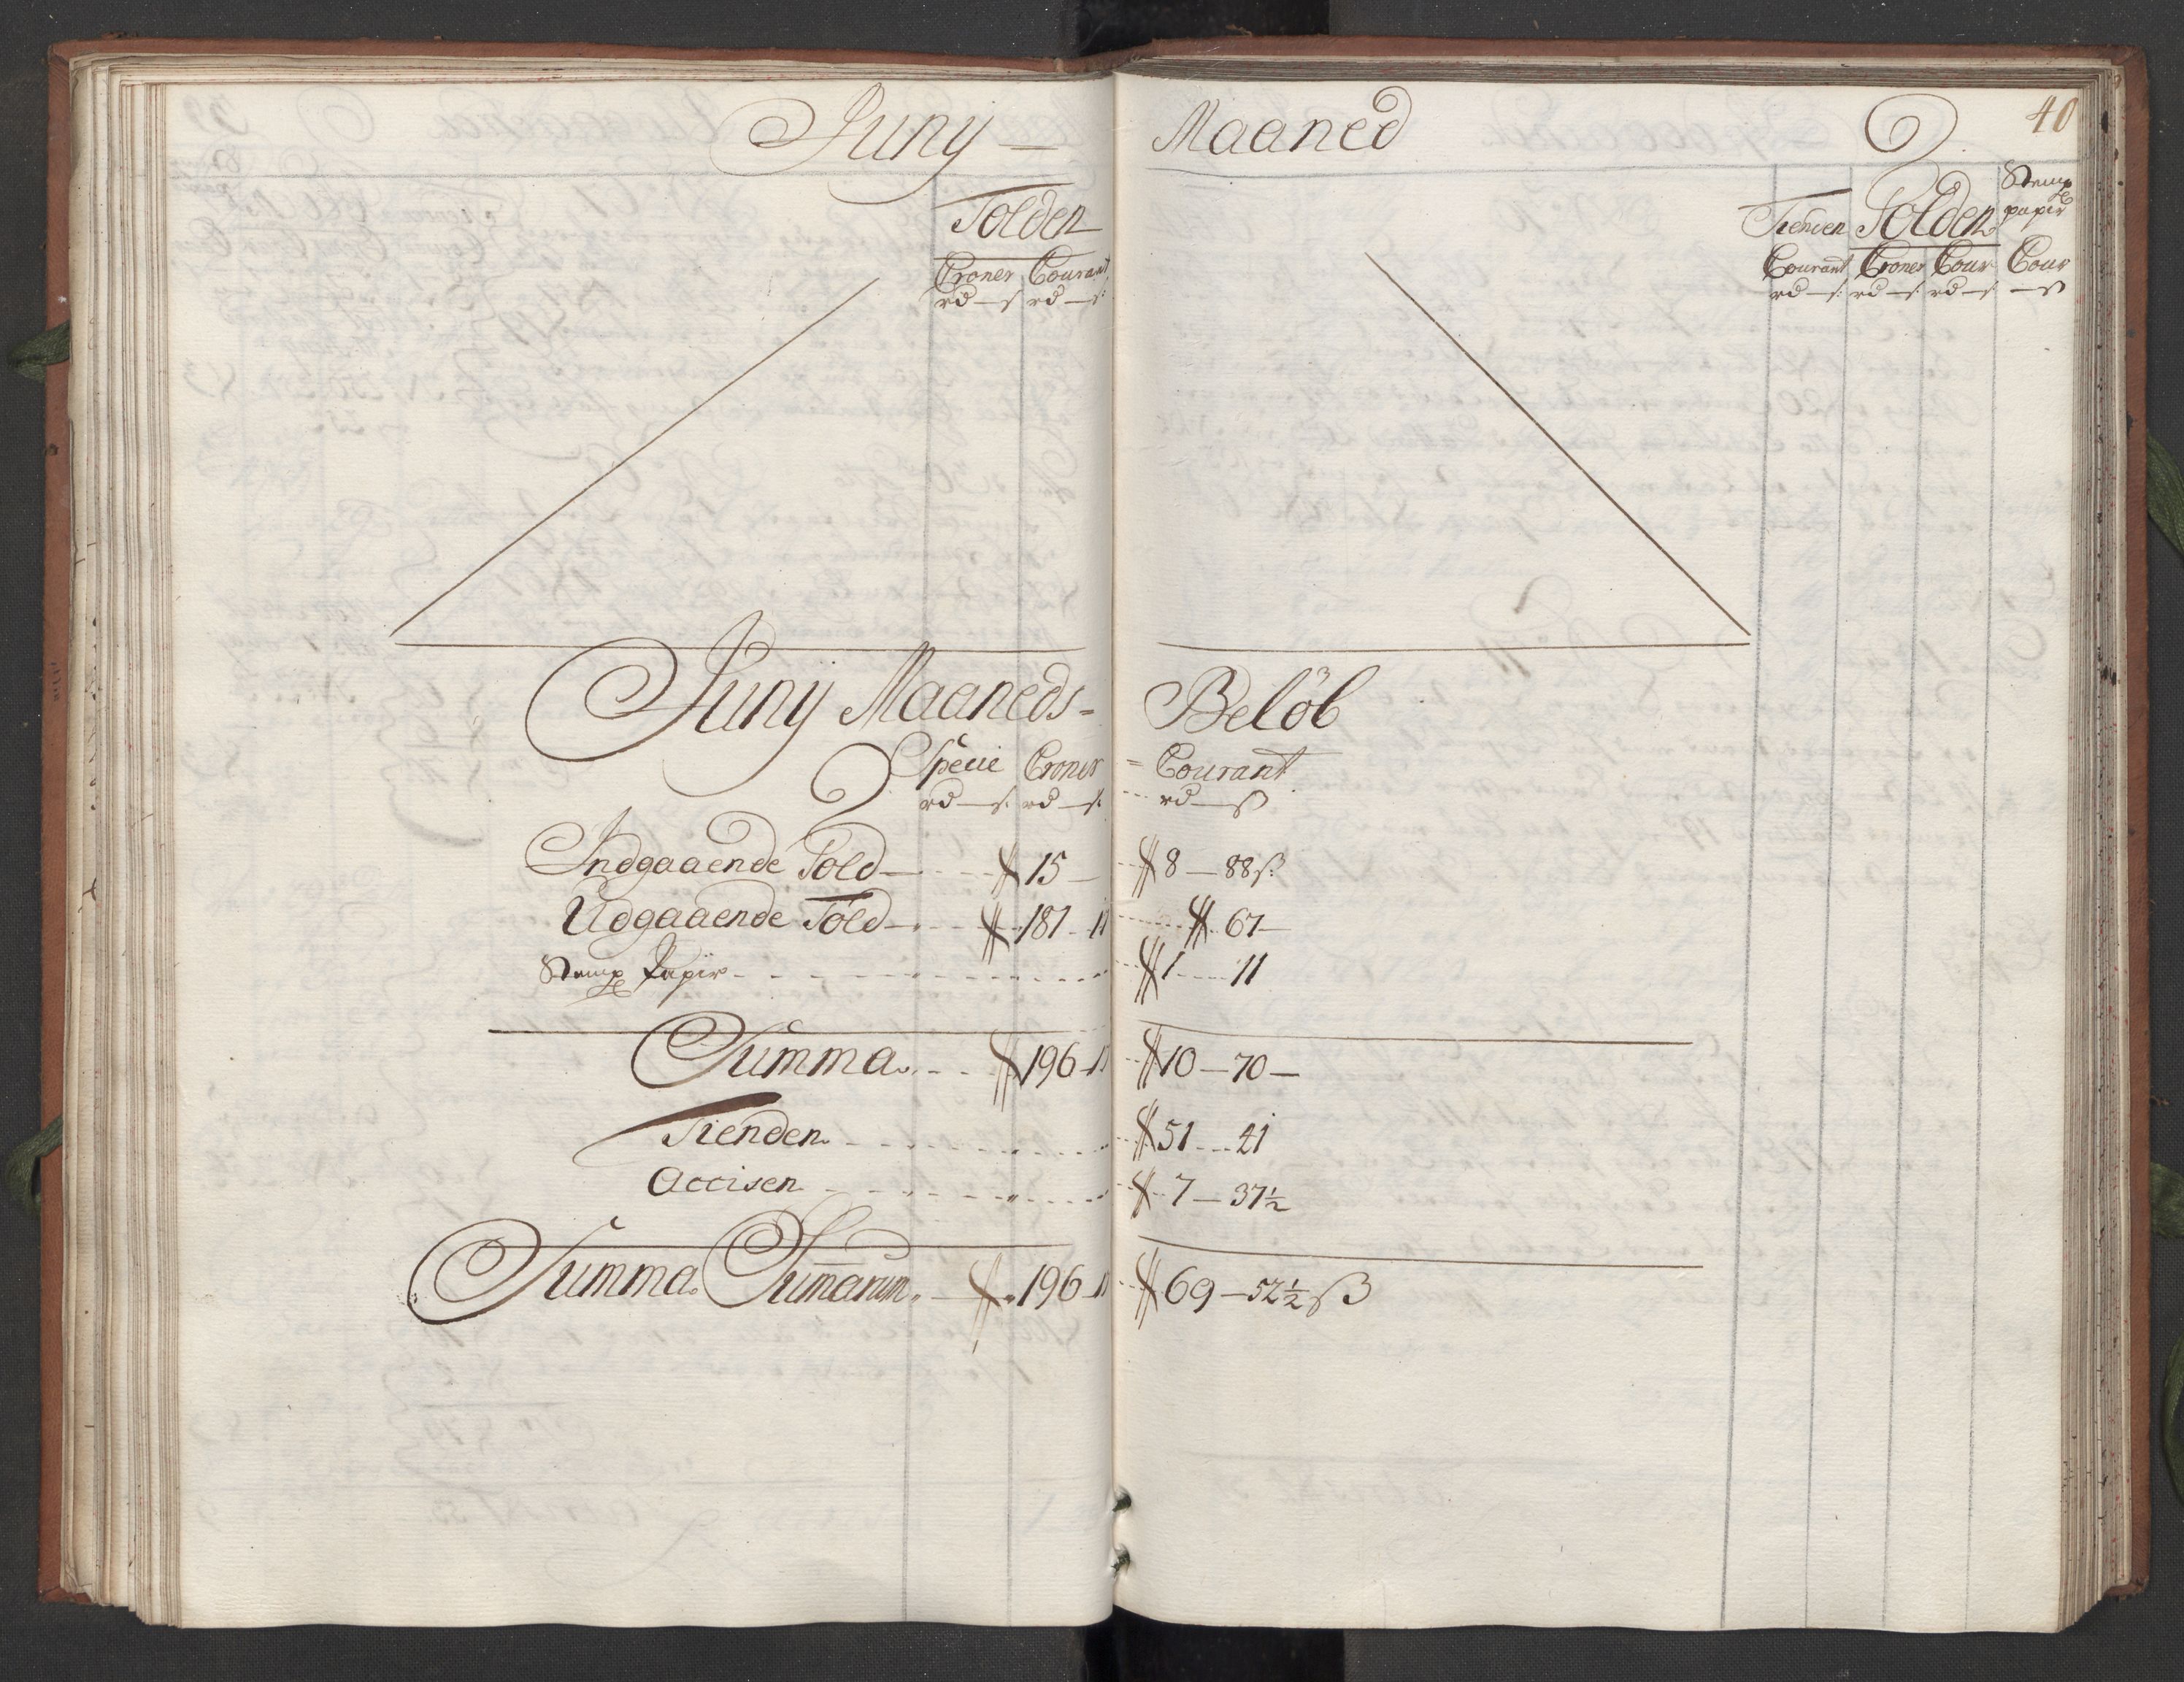 Juny — Maaned 40
Tolden
Croner Courant
rd — s rd — s:
Tienden Tolden Stemp papir
Courant Croner Cour Cour
rd — s: rd — s: rd — s — ß
Juny Maaneds= Beløb
Specie Croner = Courant
rd — s: rd — s: rd — ß
Indgaaende Told — 15 — 8 — 88 s:
Udgaaende Told — 181 - 11 67 —
Stemp Papir - 1 - 11
Summa. 196 - 11 10 — 70 —
Tienden. 51 - 41
Accisen 7 — 37½
Summa. Sumarum. 196 - 11 69 — 52½ ß